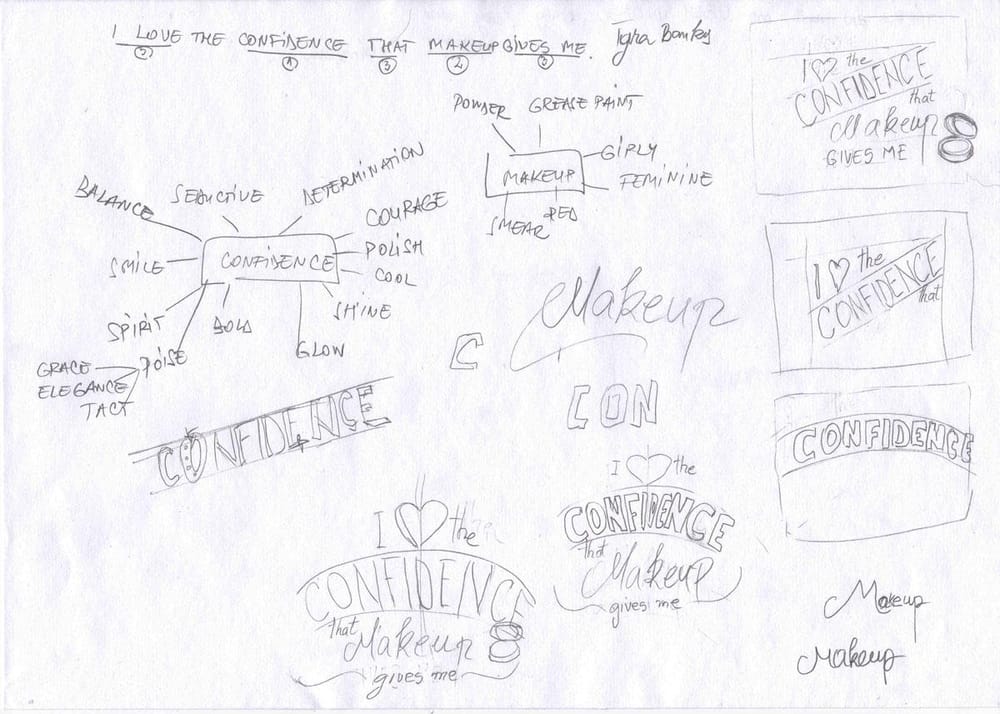 I LOVE THE CONFIDENCE THAT MAKEUP GIVES ME. Tyra Banks
2 1 3 2 3
POWDER
GREASE PAINT
GIRLY
FEMININE
MAKEUP
RED
SMEAR
BALANCE
SEDUCTIVE
DETERMINATION
COURAGE
POLISH
COOL
SHINE
GLOW
BOLD
SPIRIT
SMILE
CONFIDENCE
POISE
GRACE
ELEGANCE
TACT
CONFIDENCE
Makeup
C
CON
I the
CONFIDENCE
that
Makeup
GIVES ME
I the
CONFIDENCE
that
the
CONFIDENCE
I the
CONFIDENCE
that
Makeup
gives me
I the
CONFIDENCE
that
Makeup
gives me
Makeup
Makeup